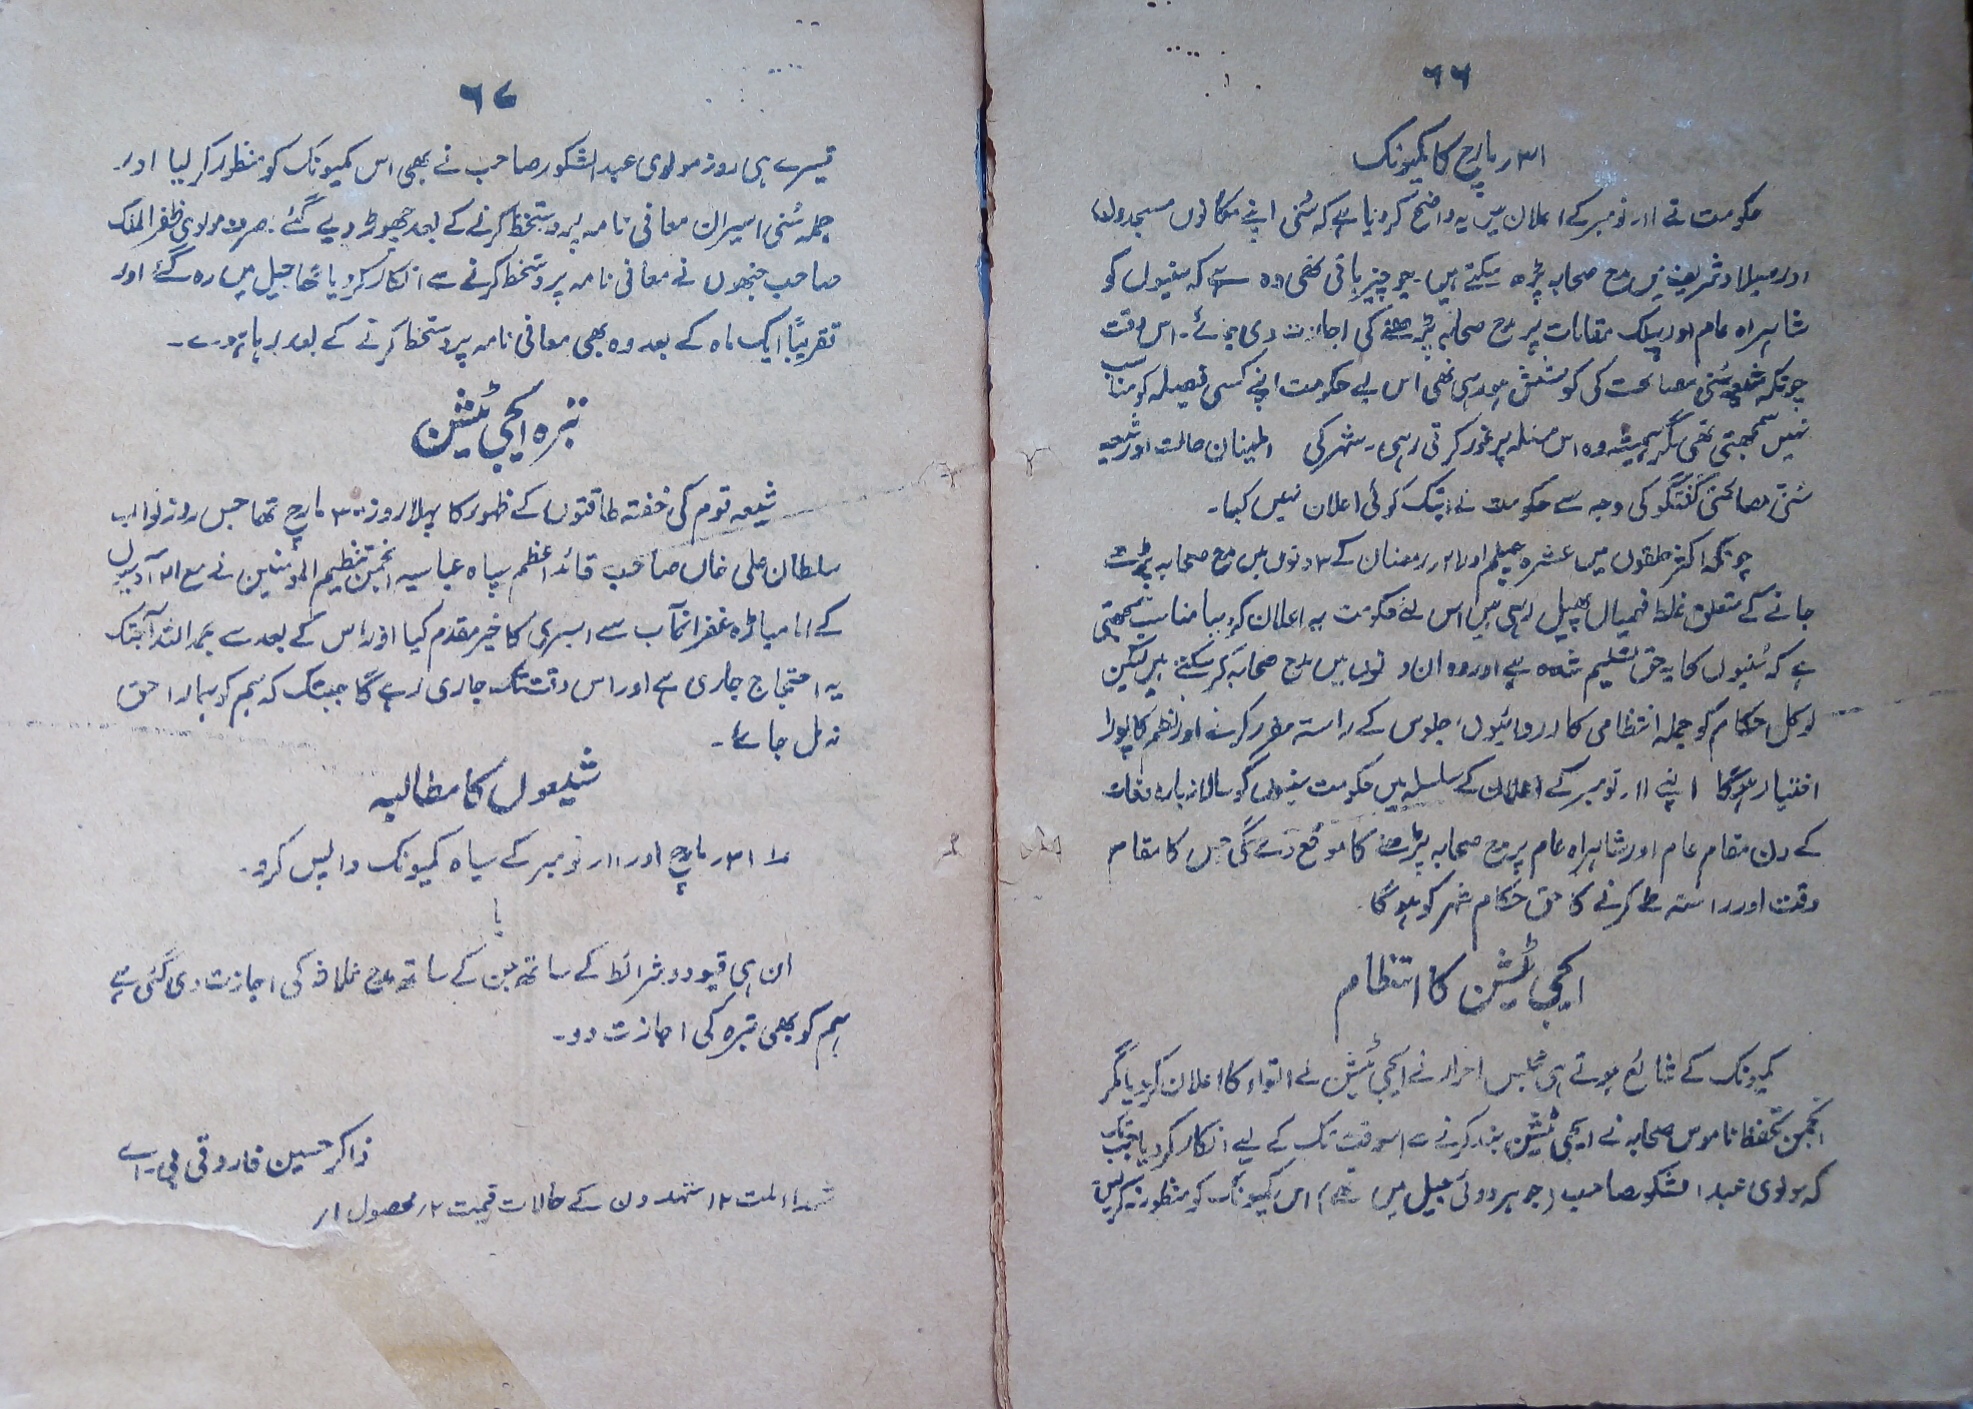 ۶۶
۳۱ر مارچ کا کمیونک
حکومت نے ۱۱ر نومبر کے اعلان میں یہ واضح کر دیا ہے کہ سُنی اپنے مکانوں مسجدوں
اور میلاد شریف میں مدح صحابہ پڑھ سکتے ہیں۔ جو چیز باقی تھی وہ یہ ہے کہ سنیوں کو
شاہراہ عام اور پبلک مقامات پر مدح صحابہ پڑھنے کی اجازت دی جائے۔ اس وقت
چونکہ شیعہ سُنی مصالحت کی کوشش ہو رہی تھی اس لیے حکومت اپنے کسی فیصلہ کو مناسب
نہیں سمجھتی تھی مگر ہمیشہ وہ اس مسئلہ پر غور کرتی رہی۔ شہر کی اطمینان حالت اور شیعہ
سُنی مصالحتی گفتگو کی وجہ سے حکومت نے ابتک کوئی اعلان نہیں کیا۔
چونکہ اکثر حلقوں میں عشرہ چہلم اور ۲۱ر رمضان کے ۳ دنوں میں مدح صحابہ پڑھے
جانے کے متعلق غلط فہمیاں پھیل رہی ہیں اس لئے حکومت یہ اعلان کر دینا مناسب سمجھتی
ہے کہ سُنیوں کا یہ حق تسلیم شدہ ہے اور وہ ان دنوں میں مدح صحابہ کر سکتے ہیں لیکن
لوکل حکام کو جملہ انتظامی کارروائیوں، جلوس کے راستہ مقرر کرنے اور نظم کا پورا
اختیار ہوگا اپنے ۱۱ر نومبر کے اعلان کے سلسلہ میں حکومت سنیوں کو سالانہ بارہ وفات
کے دن مقام عام اور شاہراہ عام پر مدح صحابہ پڑھنے کا موقع دے گی جس کا مقام
وقت اور راستہ طے کرنے کا حق حکام شہر کو ہوگا۔
ایجی ٹیشن کا انتظام
کمیونک کے شائع ہوتے ہی مجلس احرار نے ایجی ٹیشن کے التواء کا اعلان کر دیا مگر
انجمن تحفظ ناموس صحابہ نے ایجی ٹیشن بند کرنے سے اسوقت تک کے لیے انکار کر دیا جبتک
کہ مولوی عبدالشکور صاحب (جو ہردوئی جیل میں تھے) اس کمیونک کو منظور نہ کر لیں
۶۷
تیسرے ہی روز مولوی عبدالشکور صاحب نے بھی اس کمیونک کو منظور کر لیا اور
جملہ سُنی اسیران معافی نامہ پر دستخط کرنے کے بعد چھوڑ دیے گئے۔ صرف مولوی ظفر الملک
صاحب جنھوں نے معافی نامہ پر دستخط کرنے سے انکار کر دیا تھا جیل میں رہ گئے اور
تقریباً ایک ماہ کے بعد وہ بھی معافی نامہ پر دستخط کرنے کے بعد رہا ہوے۔
تبرہ ایجی ٹیشن
شیعہ قوم کی خفتہ طاقتوں کے ظہور کا پہلا روز ۳۰ مارچ تھا جس روز نواب
سلطان علی خاں صاحب قائد اعظم سپاہ عباسیہ انجمن تنظیم المومنین نے مع ۳۱ آدمیوں
کے امامباڑہ غفرانمآب سے اسیری کا خیر مقدم کیا اور اس کے بعد سے بحمد اللہ آجتک
یہ احتجاج جاری ہے اور اس وقت تک جاری رہے گا جبتک کہ ہم کو ہمارا حق
نہ مل جائے۔
شیعوں کا مطالبہ
۳۱ر مارچ اور ۱۱ر نومبر کے سیاہ کمیونک واپس کرو۔
یا
ان ہی قیود و شرائط کے ساتھ جن کے ساتھ مدح خلفاء کی اجازت دی گئی ہے
ہم کو بھی تبرہ کی اجازت دو۔
ذاکر حسین فاروقی بی۔اے
دن کے حالات قیمت ۲ر محصول ۱ر